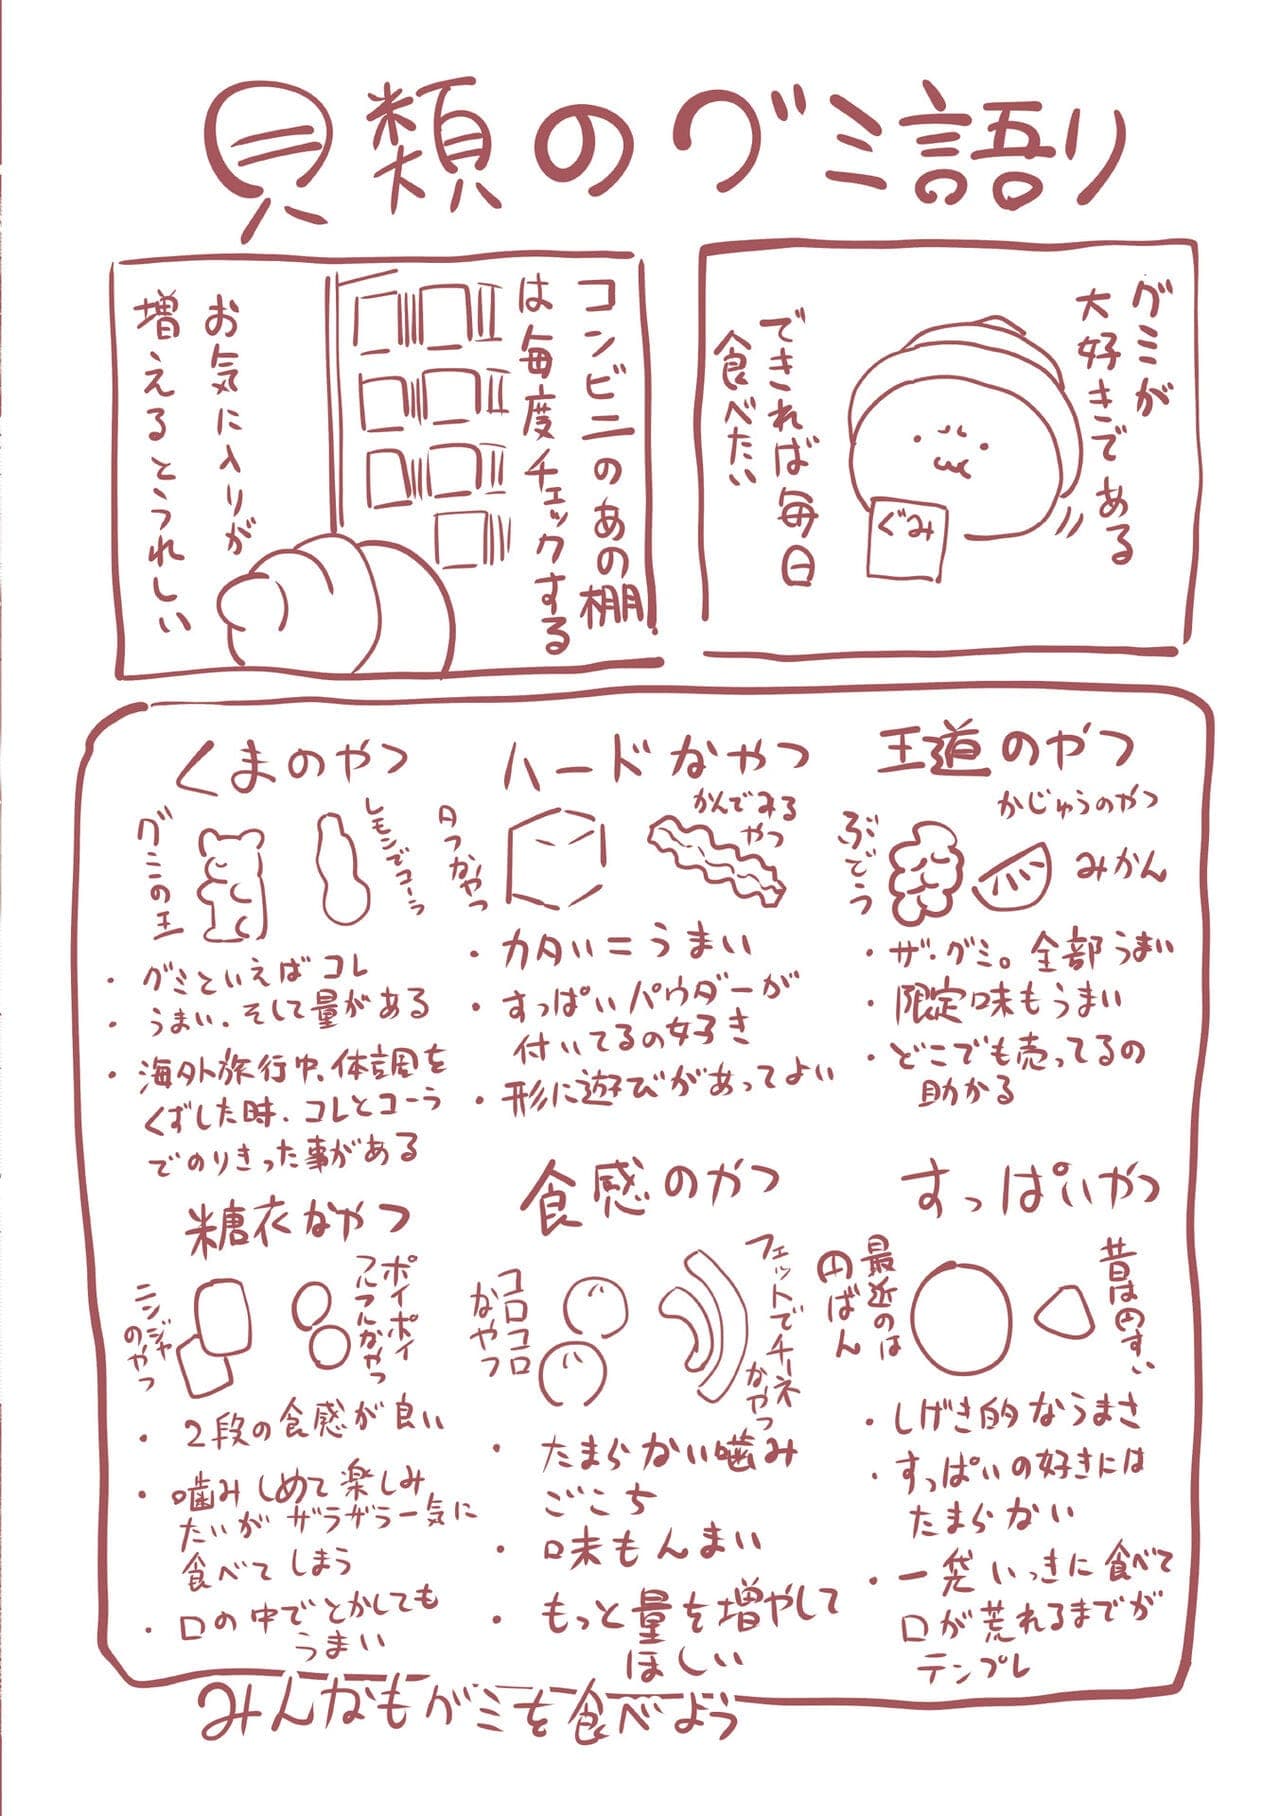 貝類のグミ語り
グミが
大好きである
できれば毎日
食べたい
ぐみ
コンビニのあの棚
は毎度チェックする
お気に入りが
増えるとうれしい
王道のやつ
かじゅうのやつ
ぶどう
みかん
・ザ・グミ。全部うまい
・限定味もうまい
・どこでも売ってるの
助かる
ハードなやつ
かんでみる
やつ
カタつかやつ
・カタい=うまい
・すっぱいパウダーが
付いてるの好き
・形に遊びがあってよい
くまのやつ
グミの王
レモンでコーラ
・グミといえばコレ
・うまい、そして量がある
・海外旅行中、体調を
くずした時、コレとコーラ
でのりきった事がある
すっぱいやつ
昔は円すい
最近のは
円ばん
・しげき的なうまさ
・すっぱいの好きには
たまらない
・一袋いっきに食べて
口が荒れるまでが
テンプレ
食感のやつ
フェットでチーネ
なやつ
コロコロ
なやつ
・たまらない噛み
ごこち
・味もんまい
・もっと量を増やして
ほしい
糖衣なやつ
ポイポイ
フルフルなやつ
ニンジャ
のやつ
・2段の食感が良い
・噛みしめて楽しみ
たいがザラザラ一気に
食べてしまう
・口の中でとかしても
うまい
みんなもグミを食べよう